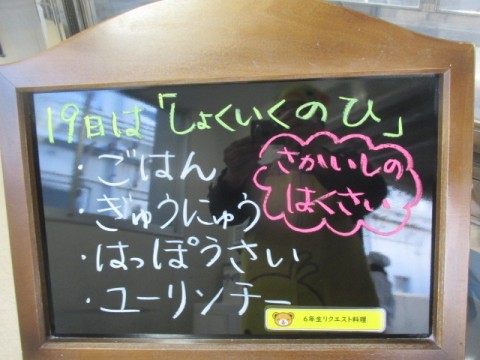 19日は「しょくいくのひ」
・ごはん
・ぎゅうにゅう
・はっぽうさい
・ユーリンチー
さかいしの
はくさい
6年生リクエスト料理